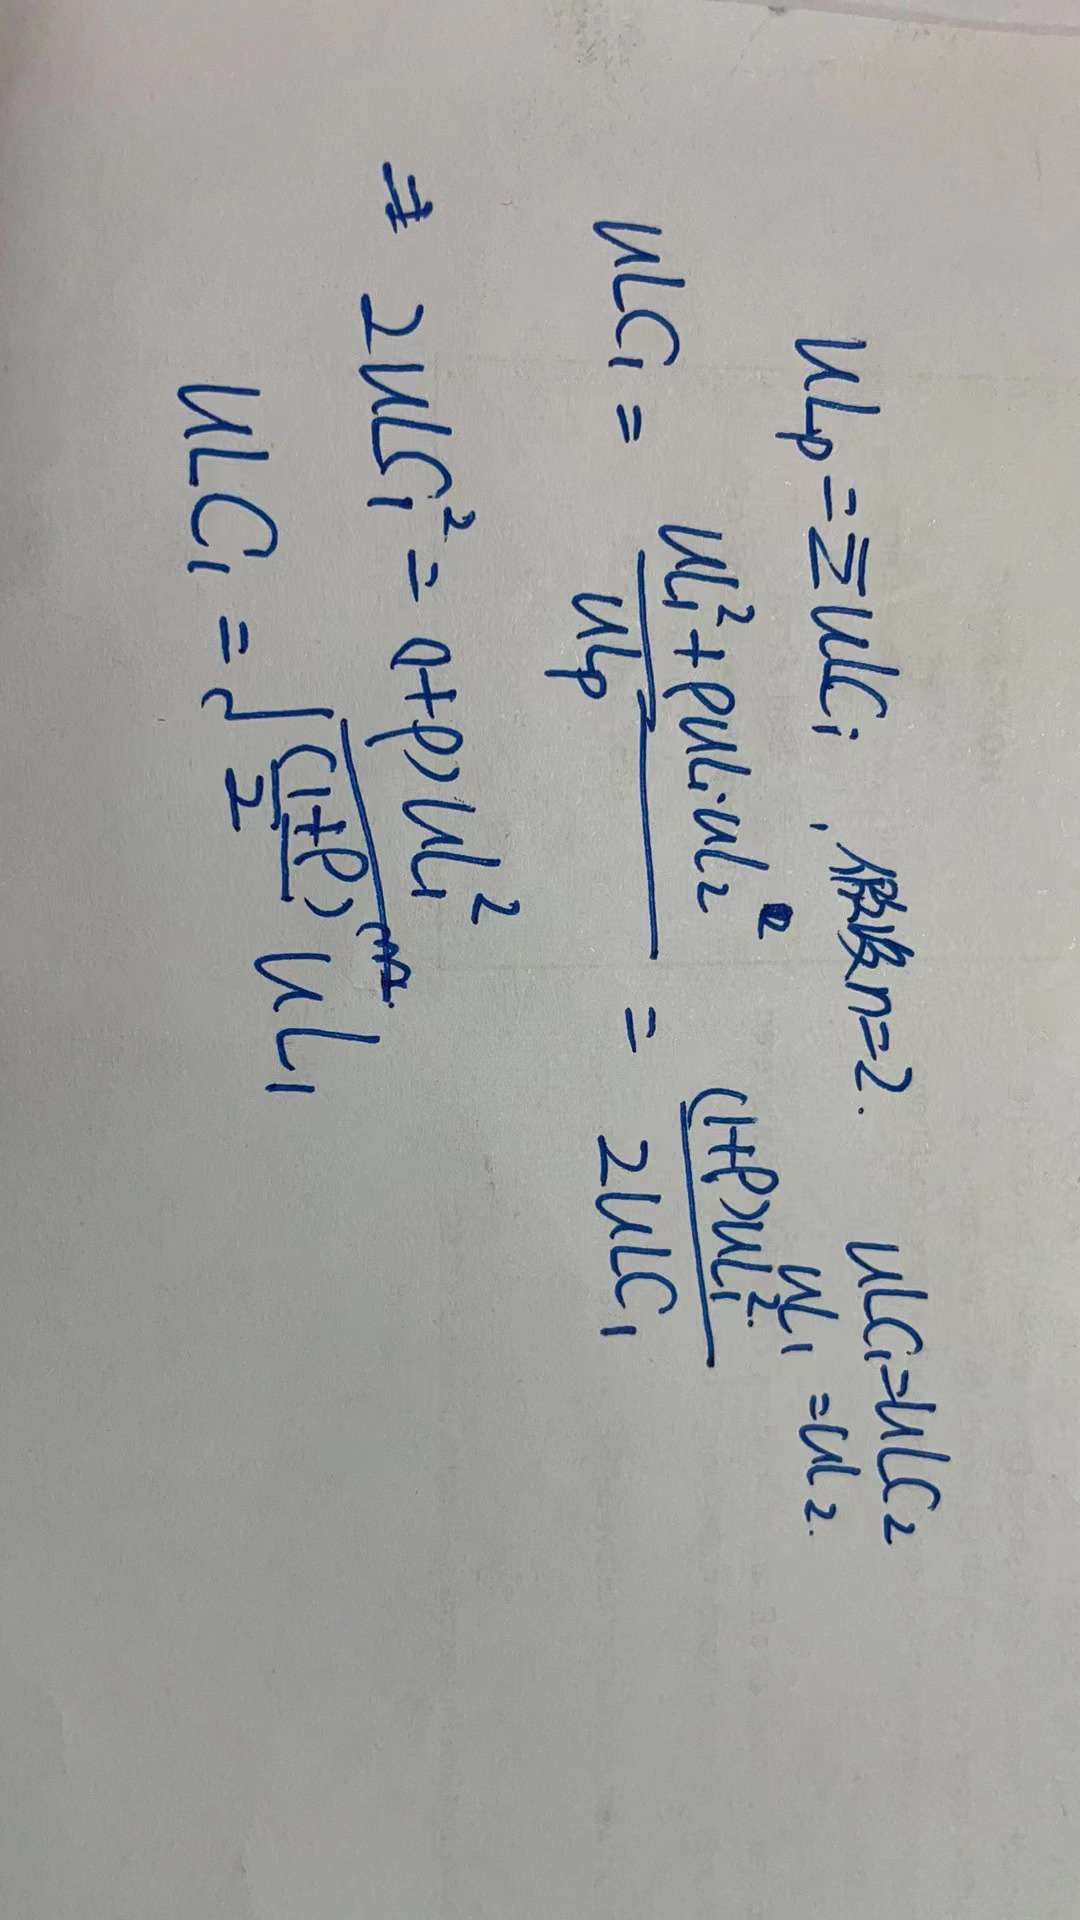 ULp = ΣULCi , 假设n=2. ULC1=ULC2
UL1 = UL2.
ULC1 = (UL1² + ρUL1·UL2) / ULp = (1+ρ)UL1² / 2ULC1
⇒ 2ULC1² = (1+ρ)UL1²
ULC1 = √((1+ρ)/2) UL1